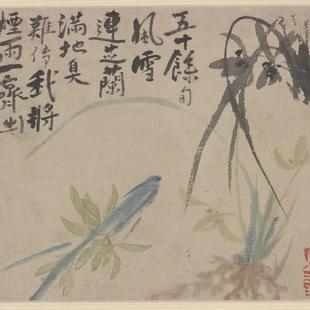 五十餘旬
風雪
連芝蘭
滿地臭
難傳我將
煙雨一齊